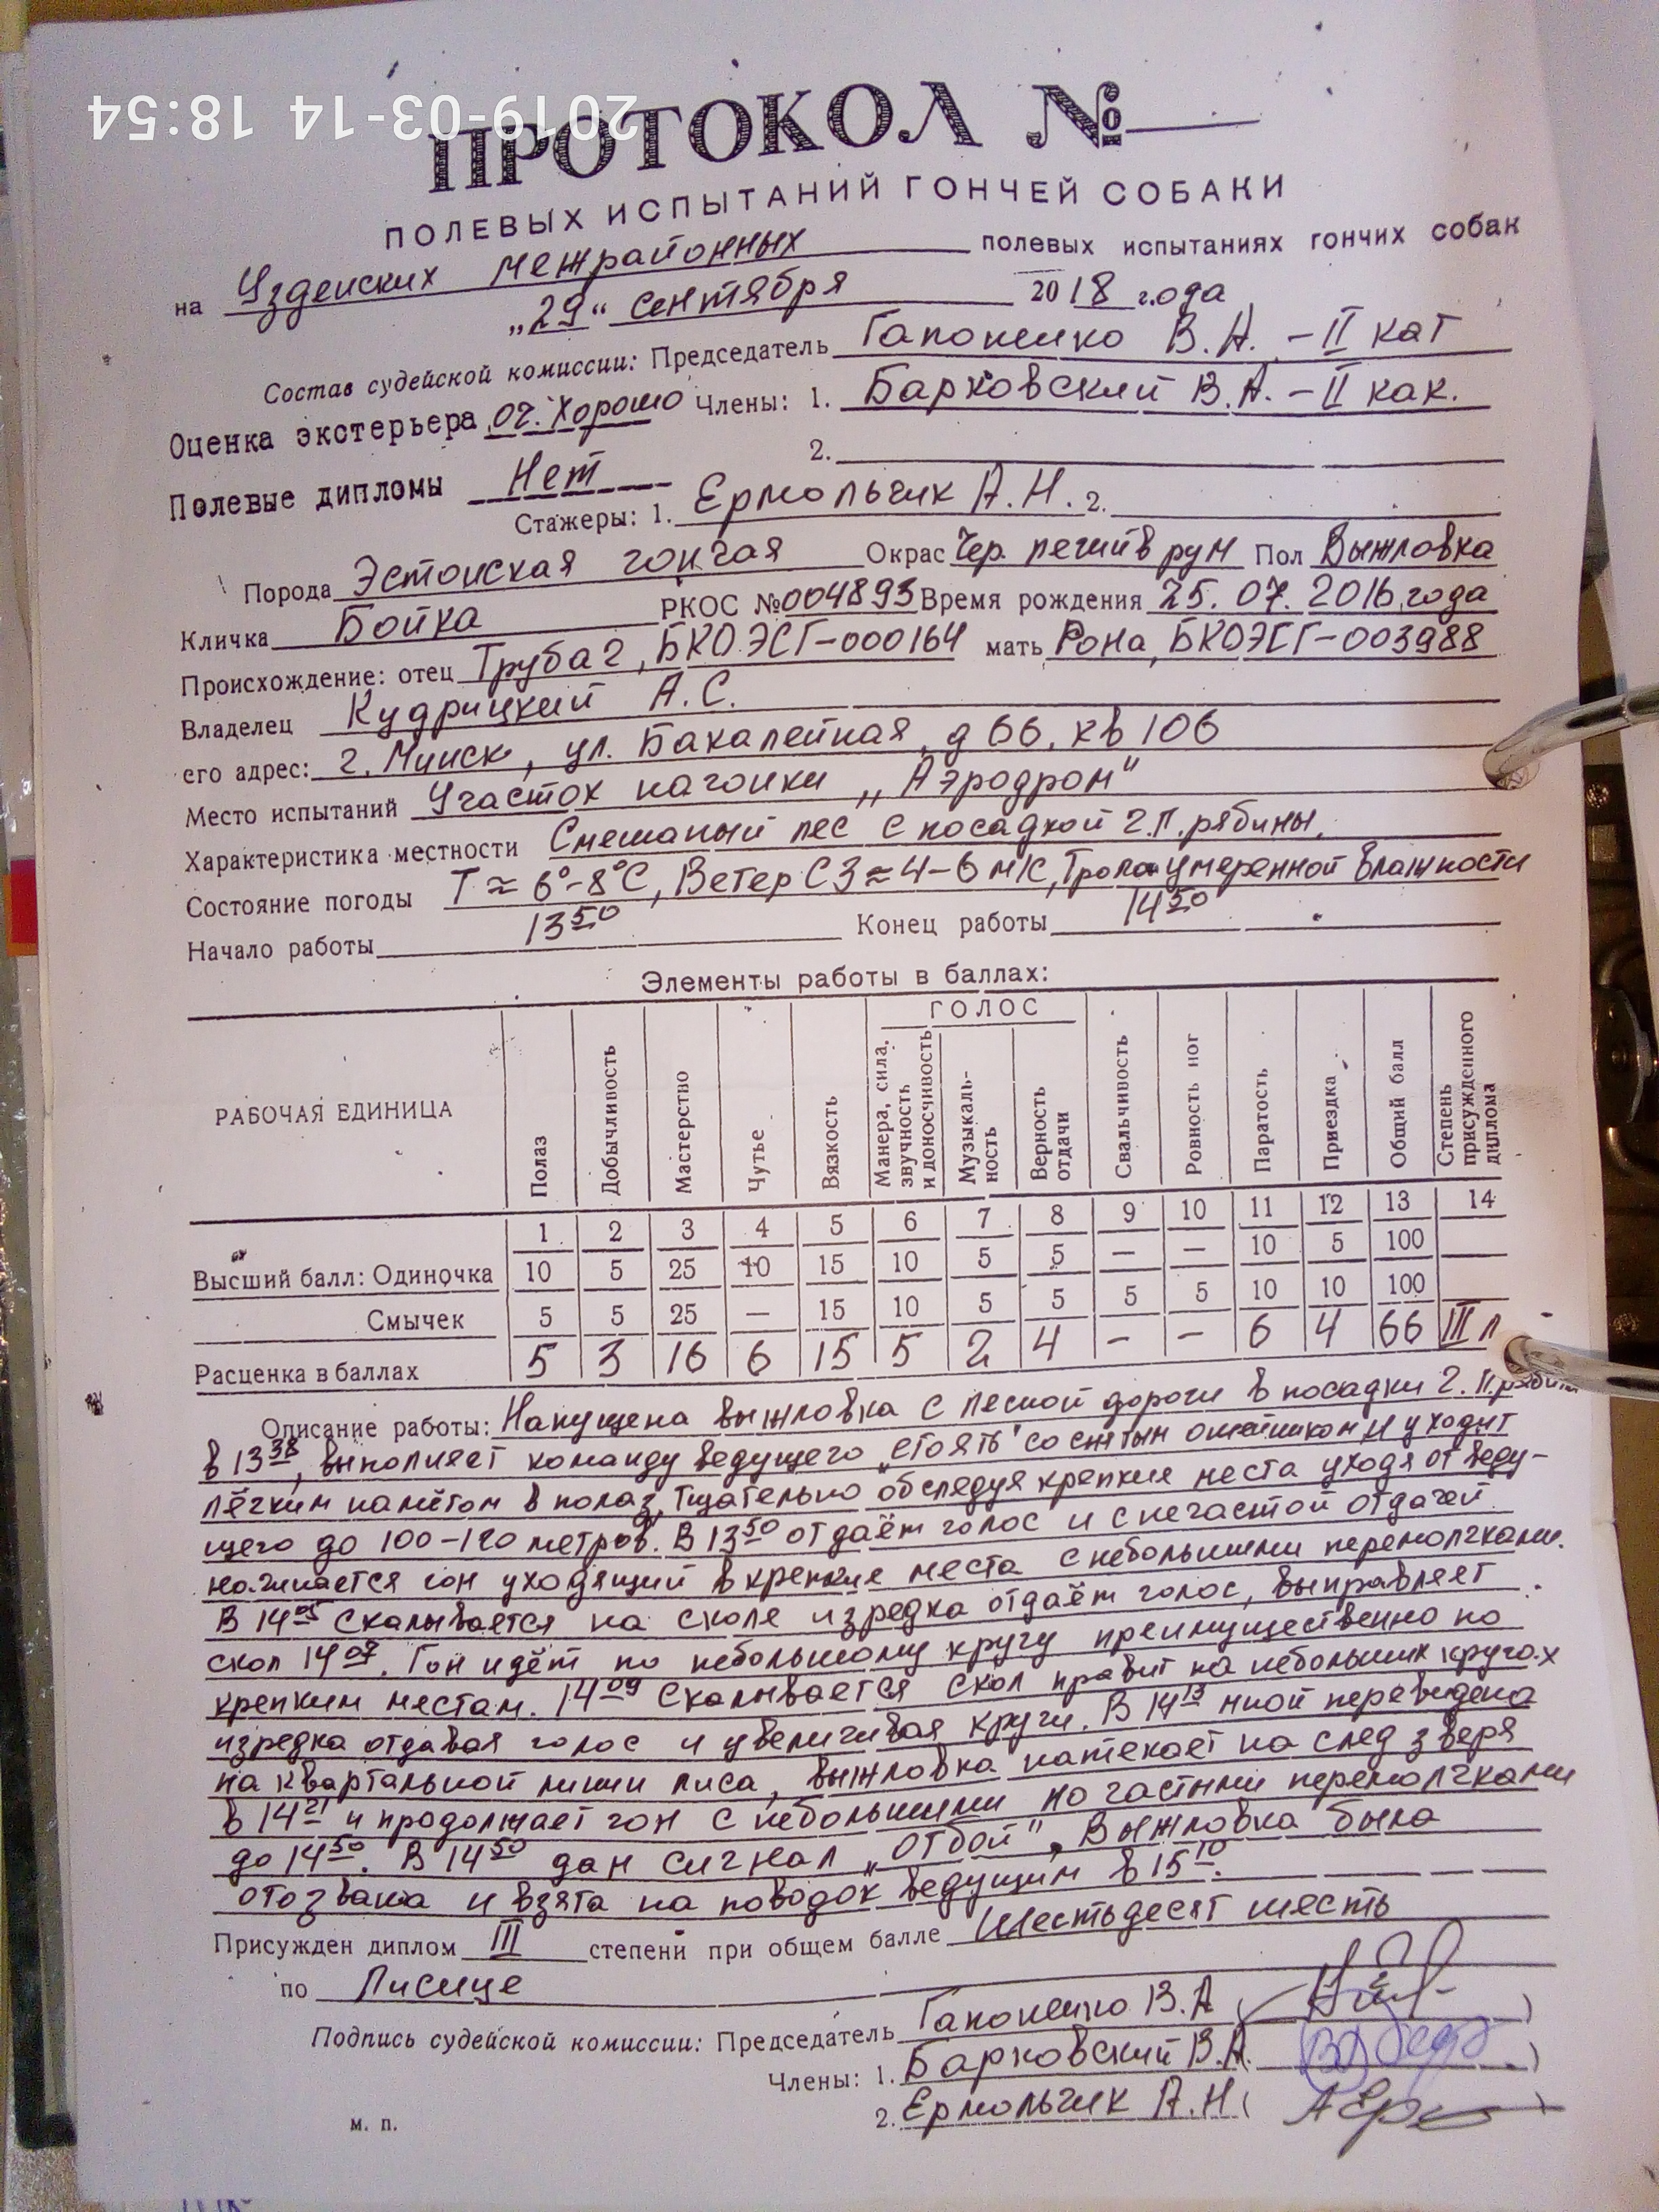 2019-03-14 18:54
ПРОТОКОЛ №
ПОЛЕВЫХ ИСПЫТАНИЙ ГОНЧЕЙ СОБАКИ
на Узденских межрайонных полевых испытаниях гончих собак
„29“ сентября 2018 г.ода
Состав судейской комиссии: Председатель Гапоненко В.А. - II кат
Оценка экстерьера оч. хорошо Члены: 1. Барковский В.А. - II как.
2.
Полевые дипломы Нет
Стажеры: 1. Ермольчик А.Н. 2.
Порода Эстонская гончая Окрас Чер. пегий в рум Пол Выжловка
Кличка Бойка РКОС №004893 Время рождения 25.07.2016 года
Происхождение: отец Труба2, БКО ЭСГ-000164 мать Рона, БКОЭСГ-003988
Владелец Кудрицкий А.С.
его адрес: г. Минск, ул. Бакалейная, д 66, кв 106
Место испытаний Участок нагонки „Аэродром"
Характеристика местности Смешаный лес с посадкой г.п. рябины.
Состояние погоды Т ≈ 6°-8°С, Ветер СЗ ≈ 4-6 м/с, Тропа умеренной влажности
Начало работы 13 50 Конец работы 14 50
Элементы работы в баллах:
РАБОЧАЯ ЕДИНИЦА Полаз Добычливость Мастерство Чутье Вязкость ГОЛОС Манера, сила, звучность и доносчивость Музыкаль-ность Верность отдачи Свальчивость Ровность ног Паратость Приездка Общий балл Степень присужденного диплома
1 2 3 4 5 6 7 8 9 10 11 12 13 14
Высший балл: Одиночка 10 5 25 10 15 10 5 5 — — 10 5 100
Смычек 5 5 25 — 15 10 5 5 5 5 10 10 100
Расценка в баллах 5 3 16 6 15 5 2 4 - - 6 4 66 III л
Описание работы: Напущена выжловка с лесной дороги в посадки г.п. рябины
в 13 38, выполняет команду ведущего „стоять" со снятым ошейником и уходит
лёгким намётом в полаз, тщательно обследуя крепкие места уходя от веду-
щего до 100-120 метров. В 13 50 отдаёт голос и с нечастой отдачей
начинается гон уходящий в крепкие места с небольшими перемолчками.
В 14 05 скалывается на сколе изредка отдаёт голос, выправляет
скол 14 07. Гон идёт по небольшому кругу преимущественно по
крепким местам. 14 09 скалывается скол правит на небольших кругах
изредка отдавая голос и увеличивая круги. В 14 13 мной перевидена
на квартальной линии лиса, выжловка натекает на след зверя
в 14 21 и продолжает гон с небольшими но частыми перемолчками
до 14 50. В 14 50 дан сигнал „Отбой". Выжловка была
отозвана и взята на поводок ведущим в 15 10.
Присужден диплом III степени при общем балле Шестьдесят шесть
по Лисице
Подпись судейской комиссии: Председатель Гапоненко В.А (
)
Члены: 1. Барковский В.А. )
2. Ермольчик А.Н (
м. п.